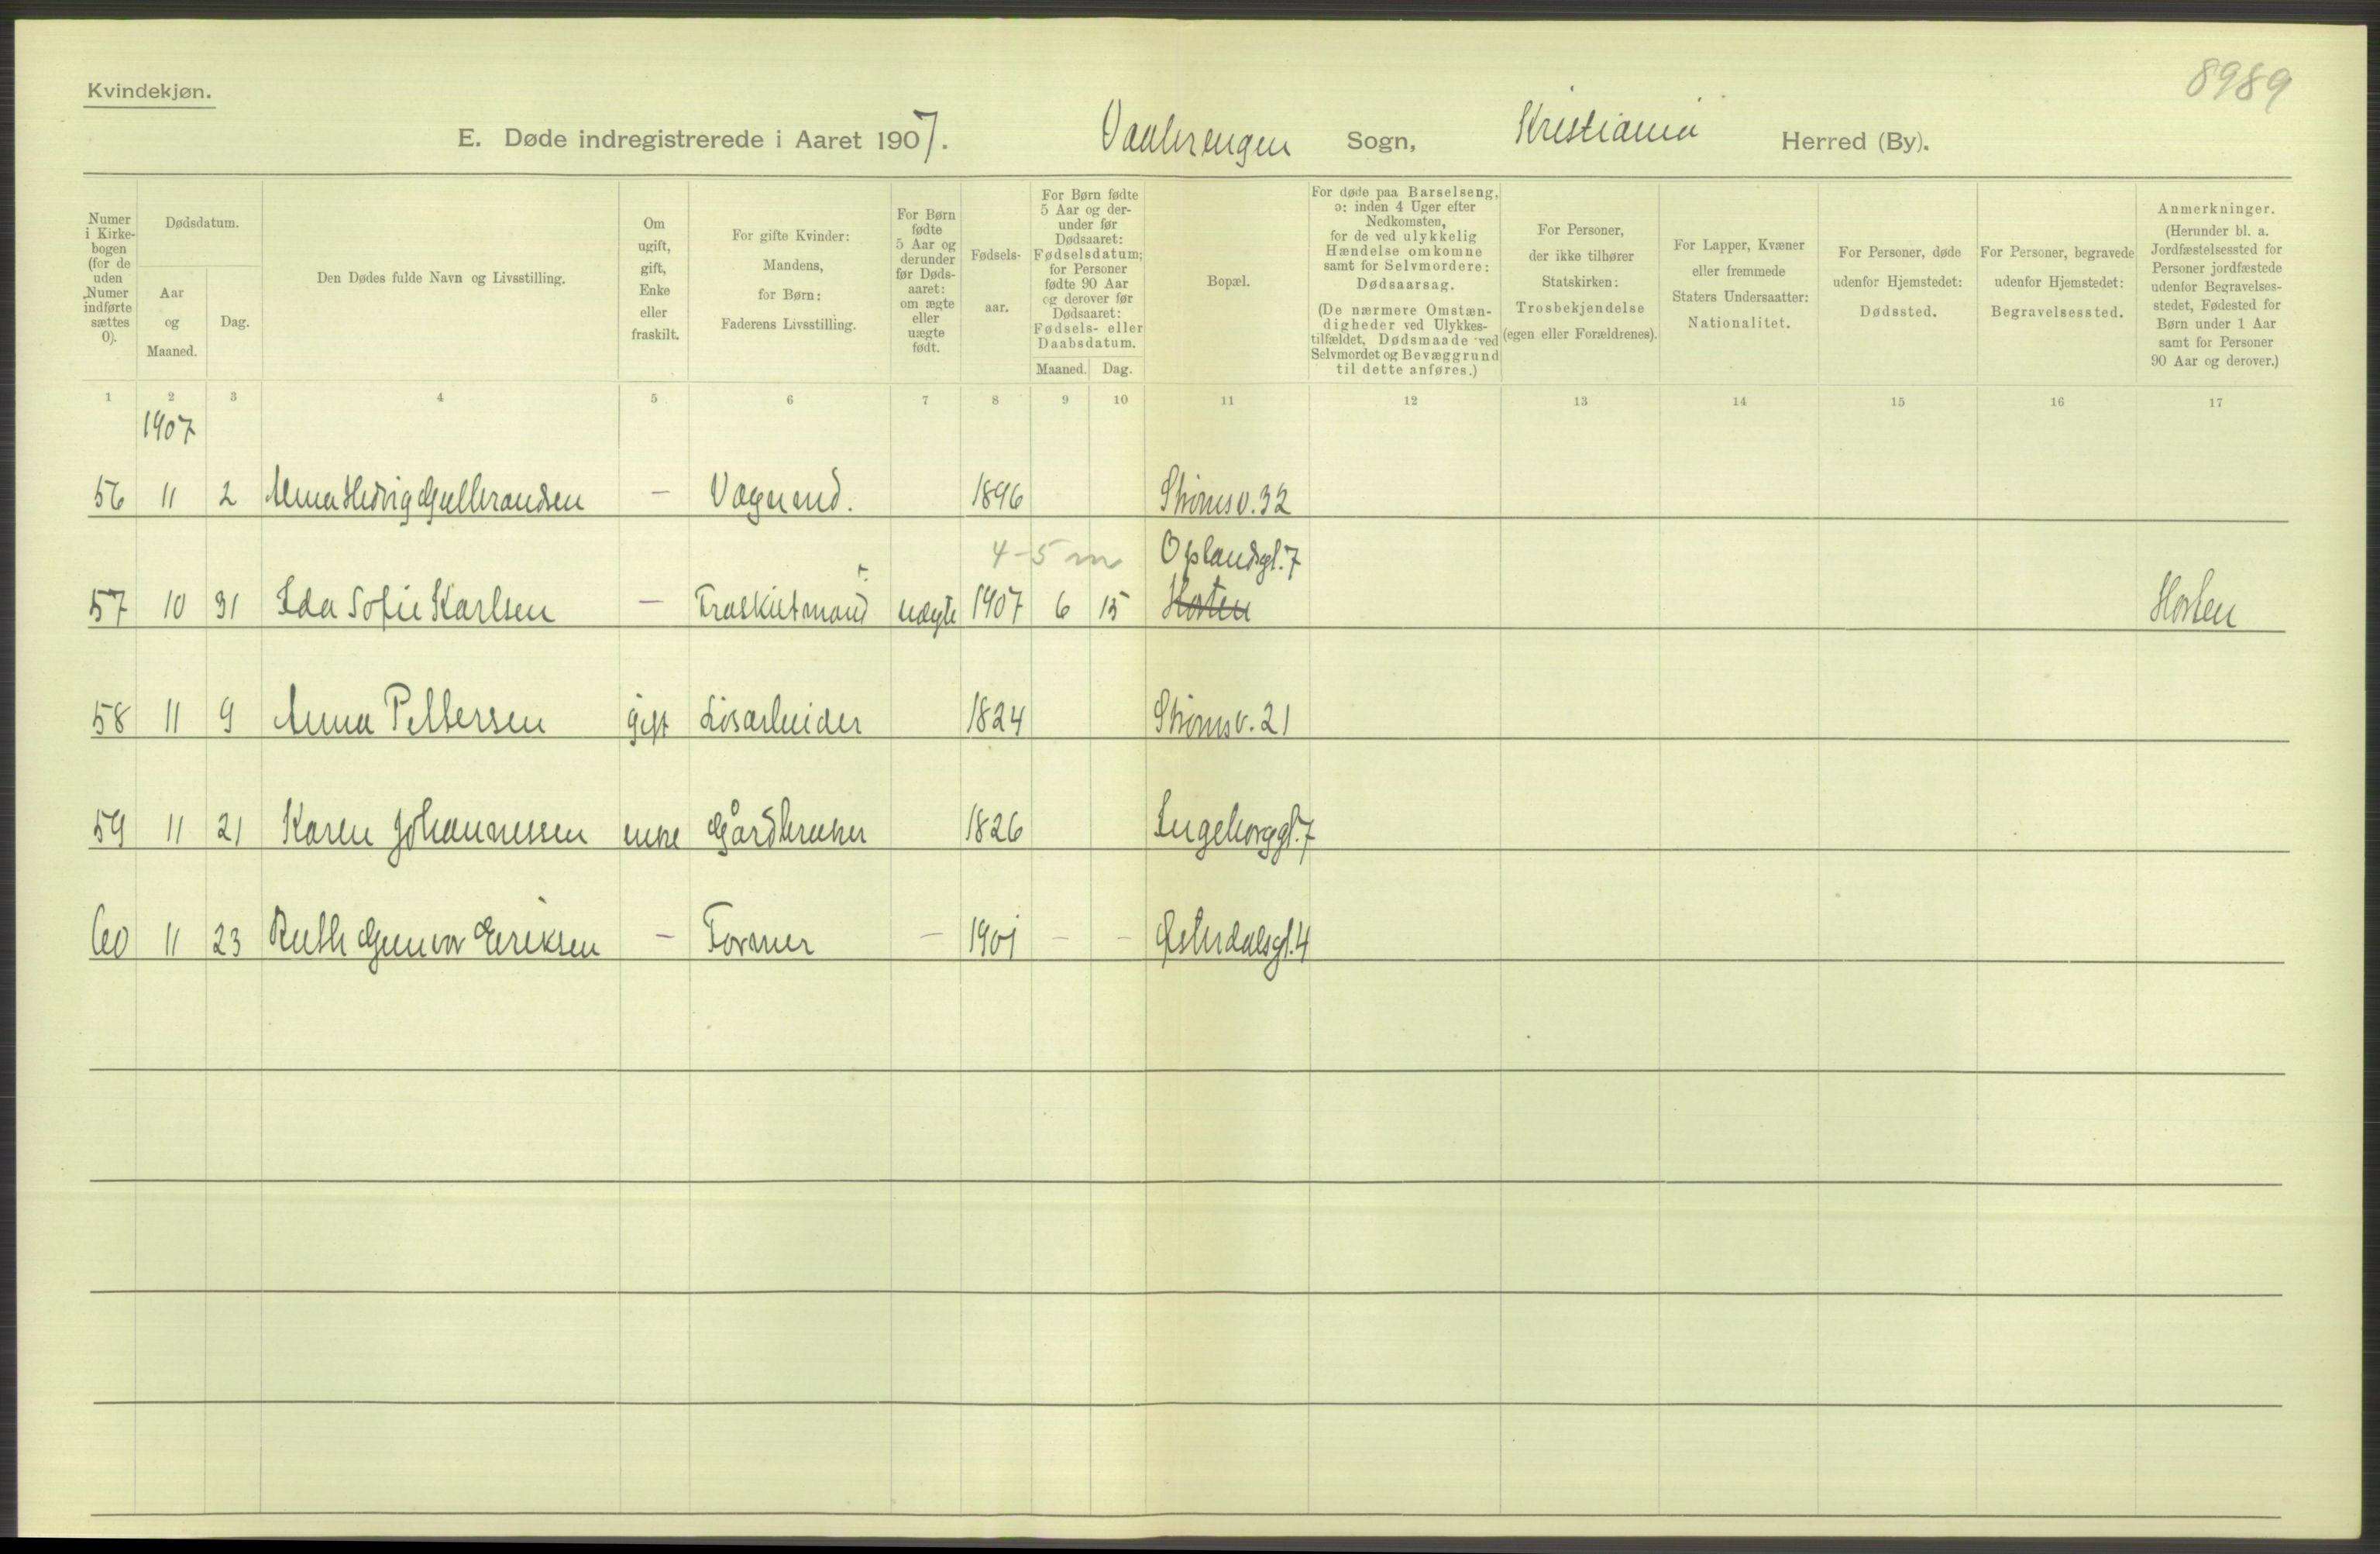 8989
Kvindekjøn.
E. Døde indregistrerede i Aaret 1907. Vaalerengen Sogn, Kristiania Herred (By).
Numer i Kirke-bogen (for de uden Numer indførte sættes 0).
Dødsdatum.
Aar og Maaned.
Dag.
Den Dødes fulde Navn og Livsstilling.
Om ugift, gift, Enke eller fraskilt.
For gifte Kvinder: Mandens, for Børn: Faderens Livsstilling.
For Børn fødte 5 Aar og derunder før Døds-aaret: om ægte eller uægte født.
Fødsels-aar.
For Børn fødte 5 Aar og der-under før Dødsaaret: Fødselsdatum; for Personer fødte 90 Aar og derover før Dødsaaret: Fødsels- eller Daabsdatum.
Maaned. Dag.
Bopæl.
For døde paa Barselseng, ɔ: inden 4 Uger efter Nedkomsten, for de ved ulykkelig Hændelse omkomne samt for Selvmordere: Dødsaarsag.
(De nærmere Omstæn-digheder ved Ulykkes-tilfældet, Dødsmaade ved Selvmordet og Bevæggrund til dette anføres.)
For Personer, der ikke tilhører Statskirken: Trosbekjendelse (egen eller Forældrenes).
For Lapper, Kvæner eller fremmede Staters Undersaatter: Nationalitet.
For Personer, døde udenfor Hjemstedet: Dødssted.
For Personer, begravede udenfor Hjemstedet: Begravelsessted.
Anmerkninger. (Herunder bl. a. Jordfæstelsessted for Personer jordfæstede udenfor Begravelses-stedet, Fødested for Børn under 1 Aar samt for Personer 90 Aar og derover.)
1 2 3 4 5 6 7 8 9 10 11 12 13 14 15 16 17
1907
56 11 2 Anna Hedvig Gulbrandsen - Vognmd. 1896 Strömsv. 32
4-5 m Oplandsgt. 7
57 10 31 Ida Sofie Karlsen - Fraskilt mand uægte 1907 6 15 Horten Horten
58 11 9 Anna Pettersen gift Løsarbeider 1824 Strömsv. 21
59 11 21 Karen Johannessen enke Gårdbruker 1826 Ingeborggt. 7
60 11 23 Ruth Gunvor Eriksen - Former - 1901 - - Østerdalsgt. 4